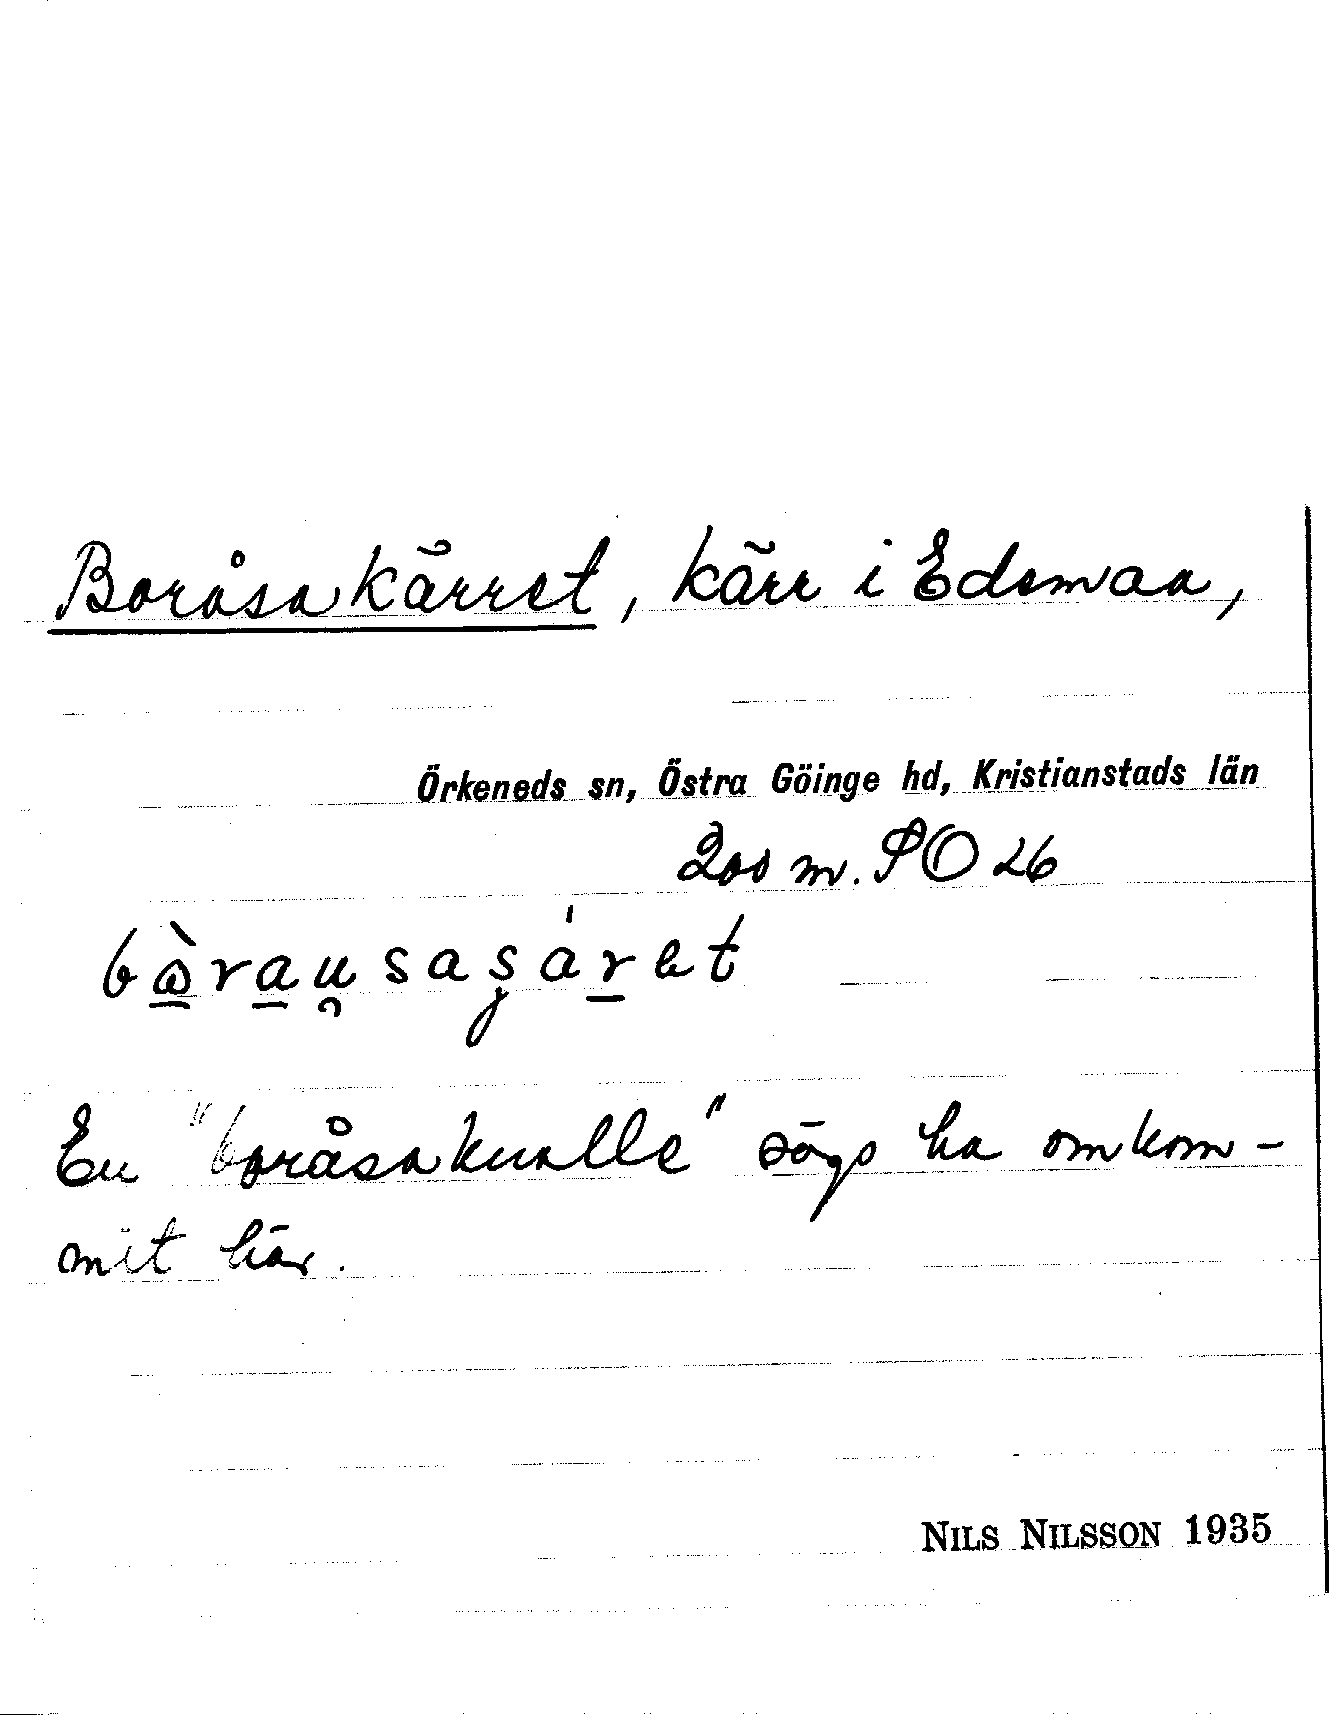 Boråsakärret, kärr i Edemaa,
Örkeneds sn, Östra Göinge hd, Kristianstads län
200 m. SO 26
En "boråsaknalle" sägs ha omkom-
mit här.
NILS NILSSON 1935